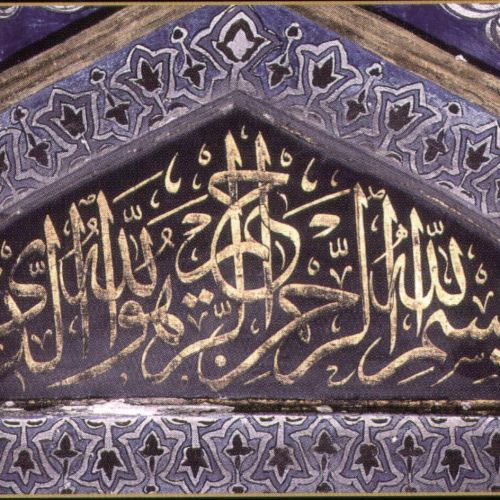 بسم الله الرحمن الرحيم هو الله الذي